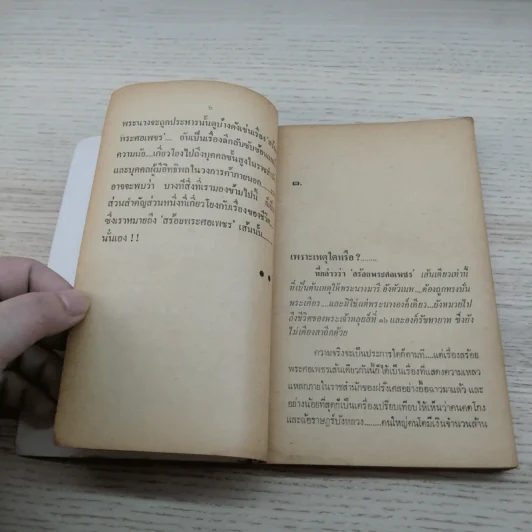 พระนางจะถูกประหารนั้นดูบ้างดังเช่นเรื่อง
พระศอเพชร'... อันเป็นเรื่องลึกลับซับซ้อน
ความนัย...เกี่ยวโยงไปถึงบุคคลชั้นสูงใน
และบุคคลผู้มีอิทธิพลในวงการค้าภายนอก....
อาจจะพบว่า บางทีสิ่งที่เรามองข้ามไปนี้
ส่วนสำคัญส่วนหนึ่งที่เกี่ยวโยงกับเรื่องของชีวิต...
ซึ่งเราหมายถึง 'สร้อยพระศอเพชร' เส้นนั้น......
นั่นเอง !!
๑.
เพราะเหตุใดหรือ ?........
ที่กล่าวว่า 'สร้อยพระศอเพชร' เส้นเดียวเท่านี้
ที่เป็นต้นเหตุให้พระนางมารี อังตัวเนท...ต้องถูกทรงบั่น
พระเศียร....และมิใช่แต่พระนางองค์เดียว...ยังหมายไป
ถึงชีวิตของพระเจ้าหลุยส์ที่ ๑๖ และองค์รัชทายาท ซึ่งยัง
ไม่เดียงสาอีกด้วย
ความจริงจะเป็นประการใดก็ตามที....แต่เรื่องสร้อย
พระศอเพชรเส้นเดียวกันนี้ก็ได้เป็นเรื่องที่แสดงความเหลว
แหลกภายในราชสำนักของฝรั่งเศสอย่างอื้อฉาวมาแล้ว และ
อย่างน้อยที่สุดก็เป็นเครื่องเปรียบเทียบให้เห็นว่าคนคดโกง
และฉ้อราษฎร์บังหลวง........คนใหญ่คนโตมีเงินจำนวนล้าน